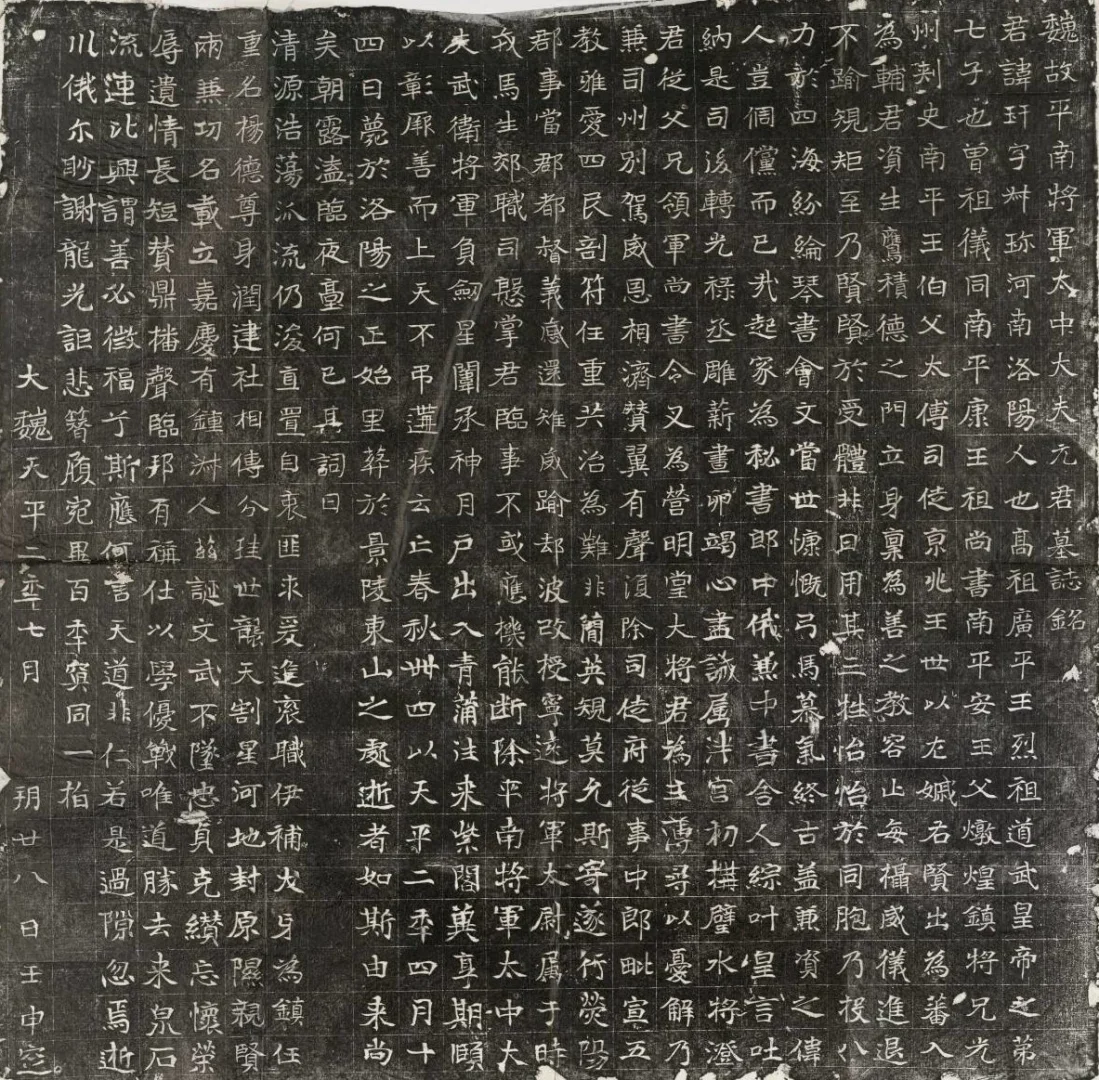 魏故平南將軍太中大夫元君墓誌銘
君諱玕字叔珍河南洛陽人也高祖廣平王烈祖道武皇帝之第
七子也曾祖儀同南平康王祖尚書南平安王父燉煌鎮將兄光
州刾史南平王伯父太傅司徒京兆王世以左嫄右賢出為蕃入
為輔君資生鷹積德之門立身稟為善之教容止每攝威儀進退
不踰規矩至乃賢賢於受體非日用其三牲怡怡於同胞乃投八
力於四海紛綸琴書會文當世慷慨弓馬慕氣終古盖兼資之偉
人豈倜儻而已㢤起家為秘書郎中俄兼中書舍人綜叶皇言吐
納是司後轉光祿丞雕薪晝卵竭心盡誠属泮宮初搆璧水將澄
君從父兄領軍尚書令又為營明堂大將君為主薄尋以憂解乃
兼司州別駕威恩相濟賛翼有聲湏除司徒府從事中郎毗宣五
教雅愛四民剖符任重共治為難非簡英規莫允斯寄遂行熒陽
郡事當郡都督義感還雉威踰却波改授寧遠將軍太尉属于時
戎馬生郊職司慇掌君臨事不或應機能断除平南將軍太中大
夫武衛將軍負劒星闈承神月戶出入青蒲注来紫閤兾享期頤
以彰厥善而上天不弔遘疾云亡春秋卌四以天平二秊四月十
四日薨於洛陽之正始里葬於景陵東山之處逝者如斯由来尚
矣朝露溘臨夜臺何已其詞曰
清源浩蕩派流仍浚直置自衷匪求爰進衮職伊補犮牙為鎮任
重名楊德尊身潤建社相傳分珪世襲天割星河地封原隰親賢
兩兼功名載立嘉慶有鍾淋人茲誕文武不墜忠貞克纘忘懷榮
辱遺情長短賛鼎播聲臨邦有稱仕以學優戰唯道勝去来泉石
流連比興謂善必徵福亍斯應何言天道非仁若是過隙忽焉逝
川俄尔眇謝龍光詎悲簪履宛畢百秊冥同一指
大魏天平二秊七月　玥廿八日壬申窆